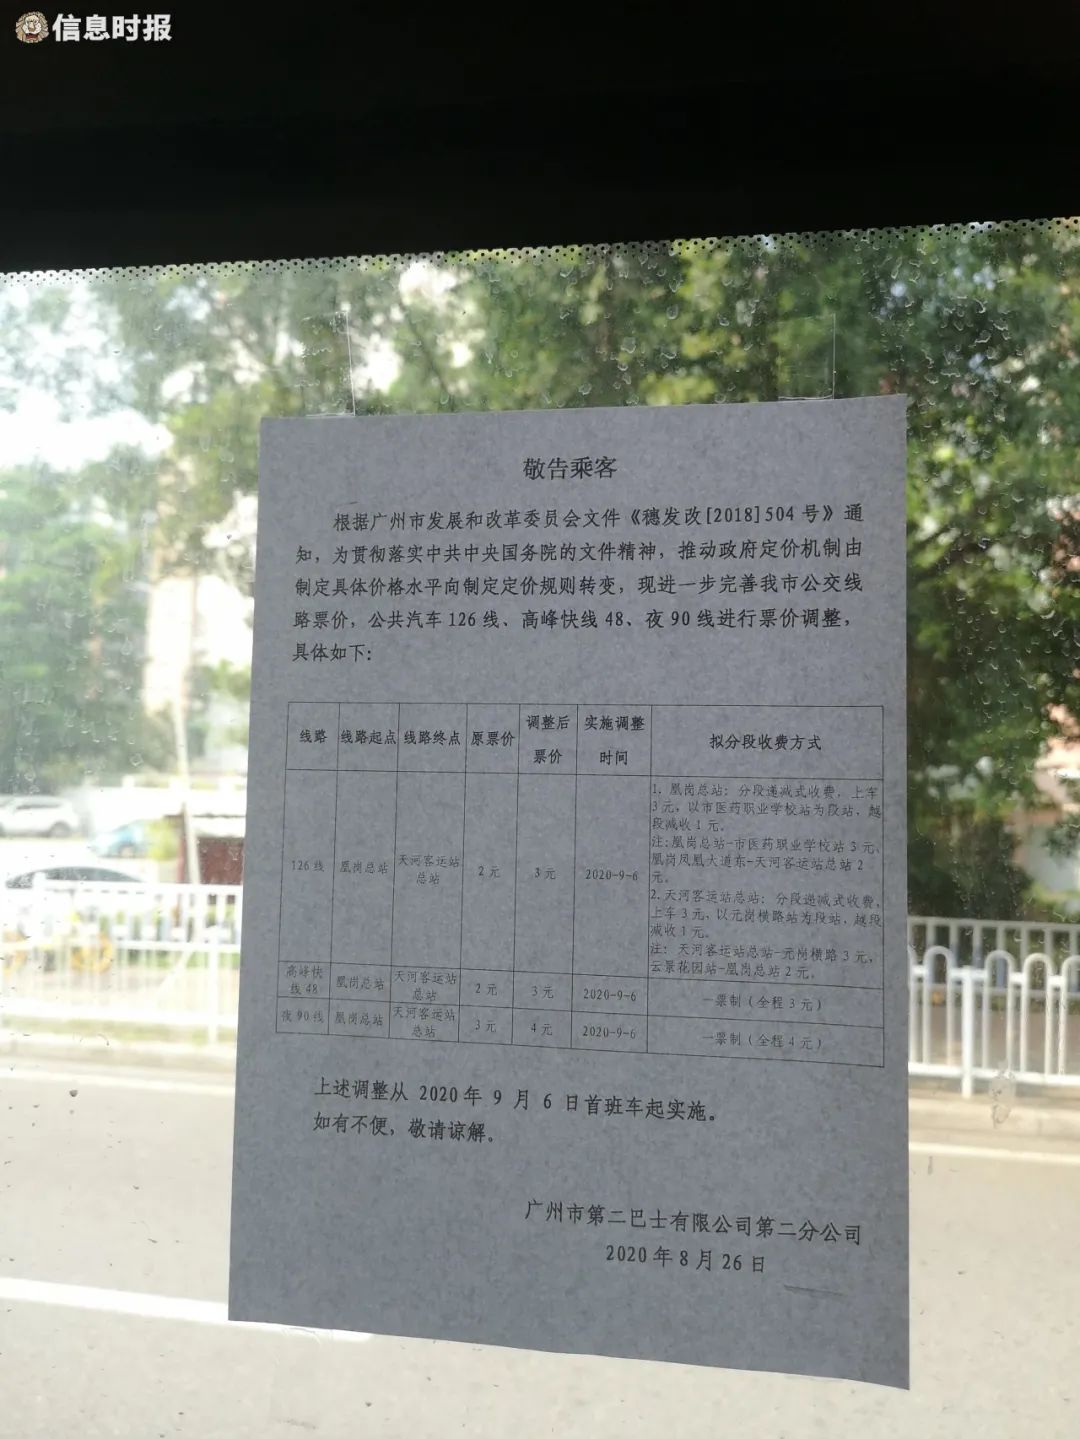 信息时报
敬告乘客
根据广州市发展和改革委员会文件《穗发改[2018]504号》通
知，为贯彻落实中共中央国务院的文件精神，推动政府定价机制由
制定具体价格水平向制定定价规则转变，现进一步完善我市公交线
路票价，公共汽车126线、高峰快线48、夜90线进行票价调整，
具体如下：
线路 线路起点 线路终点 原票价 调整后票价 实施调整时间 拟分段收费方式
126线 凰岗总站 天河客运站总站 2元 3元 2020-9-6
1、凰岗总站：分段递减式收费，上车
3元，以市医药职业学校站为段站，越
段减收1元。
注:凰岗总站-市医药职业学校站3元、
凰岗凤凰大道东-天河客运站总站2
元。
2.天河客运站总站：分段递减式收费，
上车3元，以元岗横路站为段站，越段
减收1元。
注：天河客运站总站-元岗横路3元，
云景花园站-凰岗总站2元。
高峰快线48 凰岗总站 天河客运站总站 2元 3元 2020-9-6 一票制（全程3元）
夜90线 凰岗总站 天河客运站总站 3元 4元 2020-9-6 一票制（全程4元）
上述调整从2020年9月6日首班车起实施。
如有不便，敬请谅解。
广州市第二巴士有限公司第二分公司
2020年8月26日